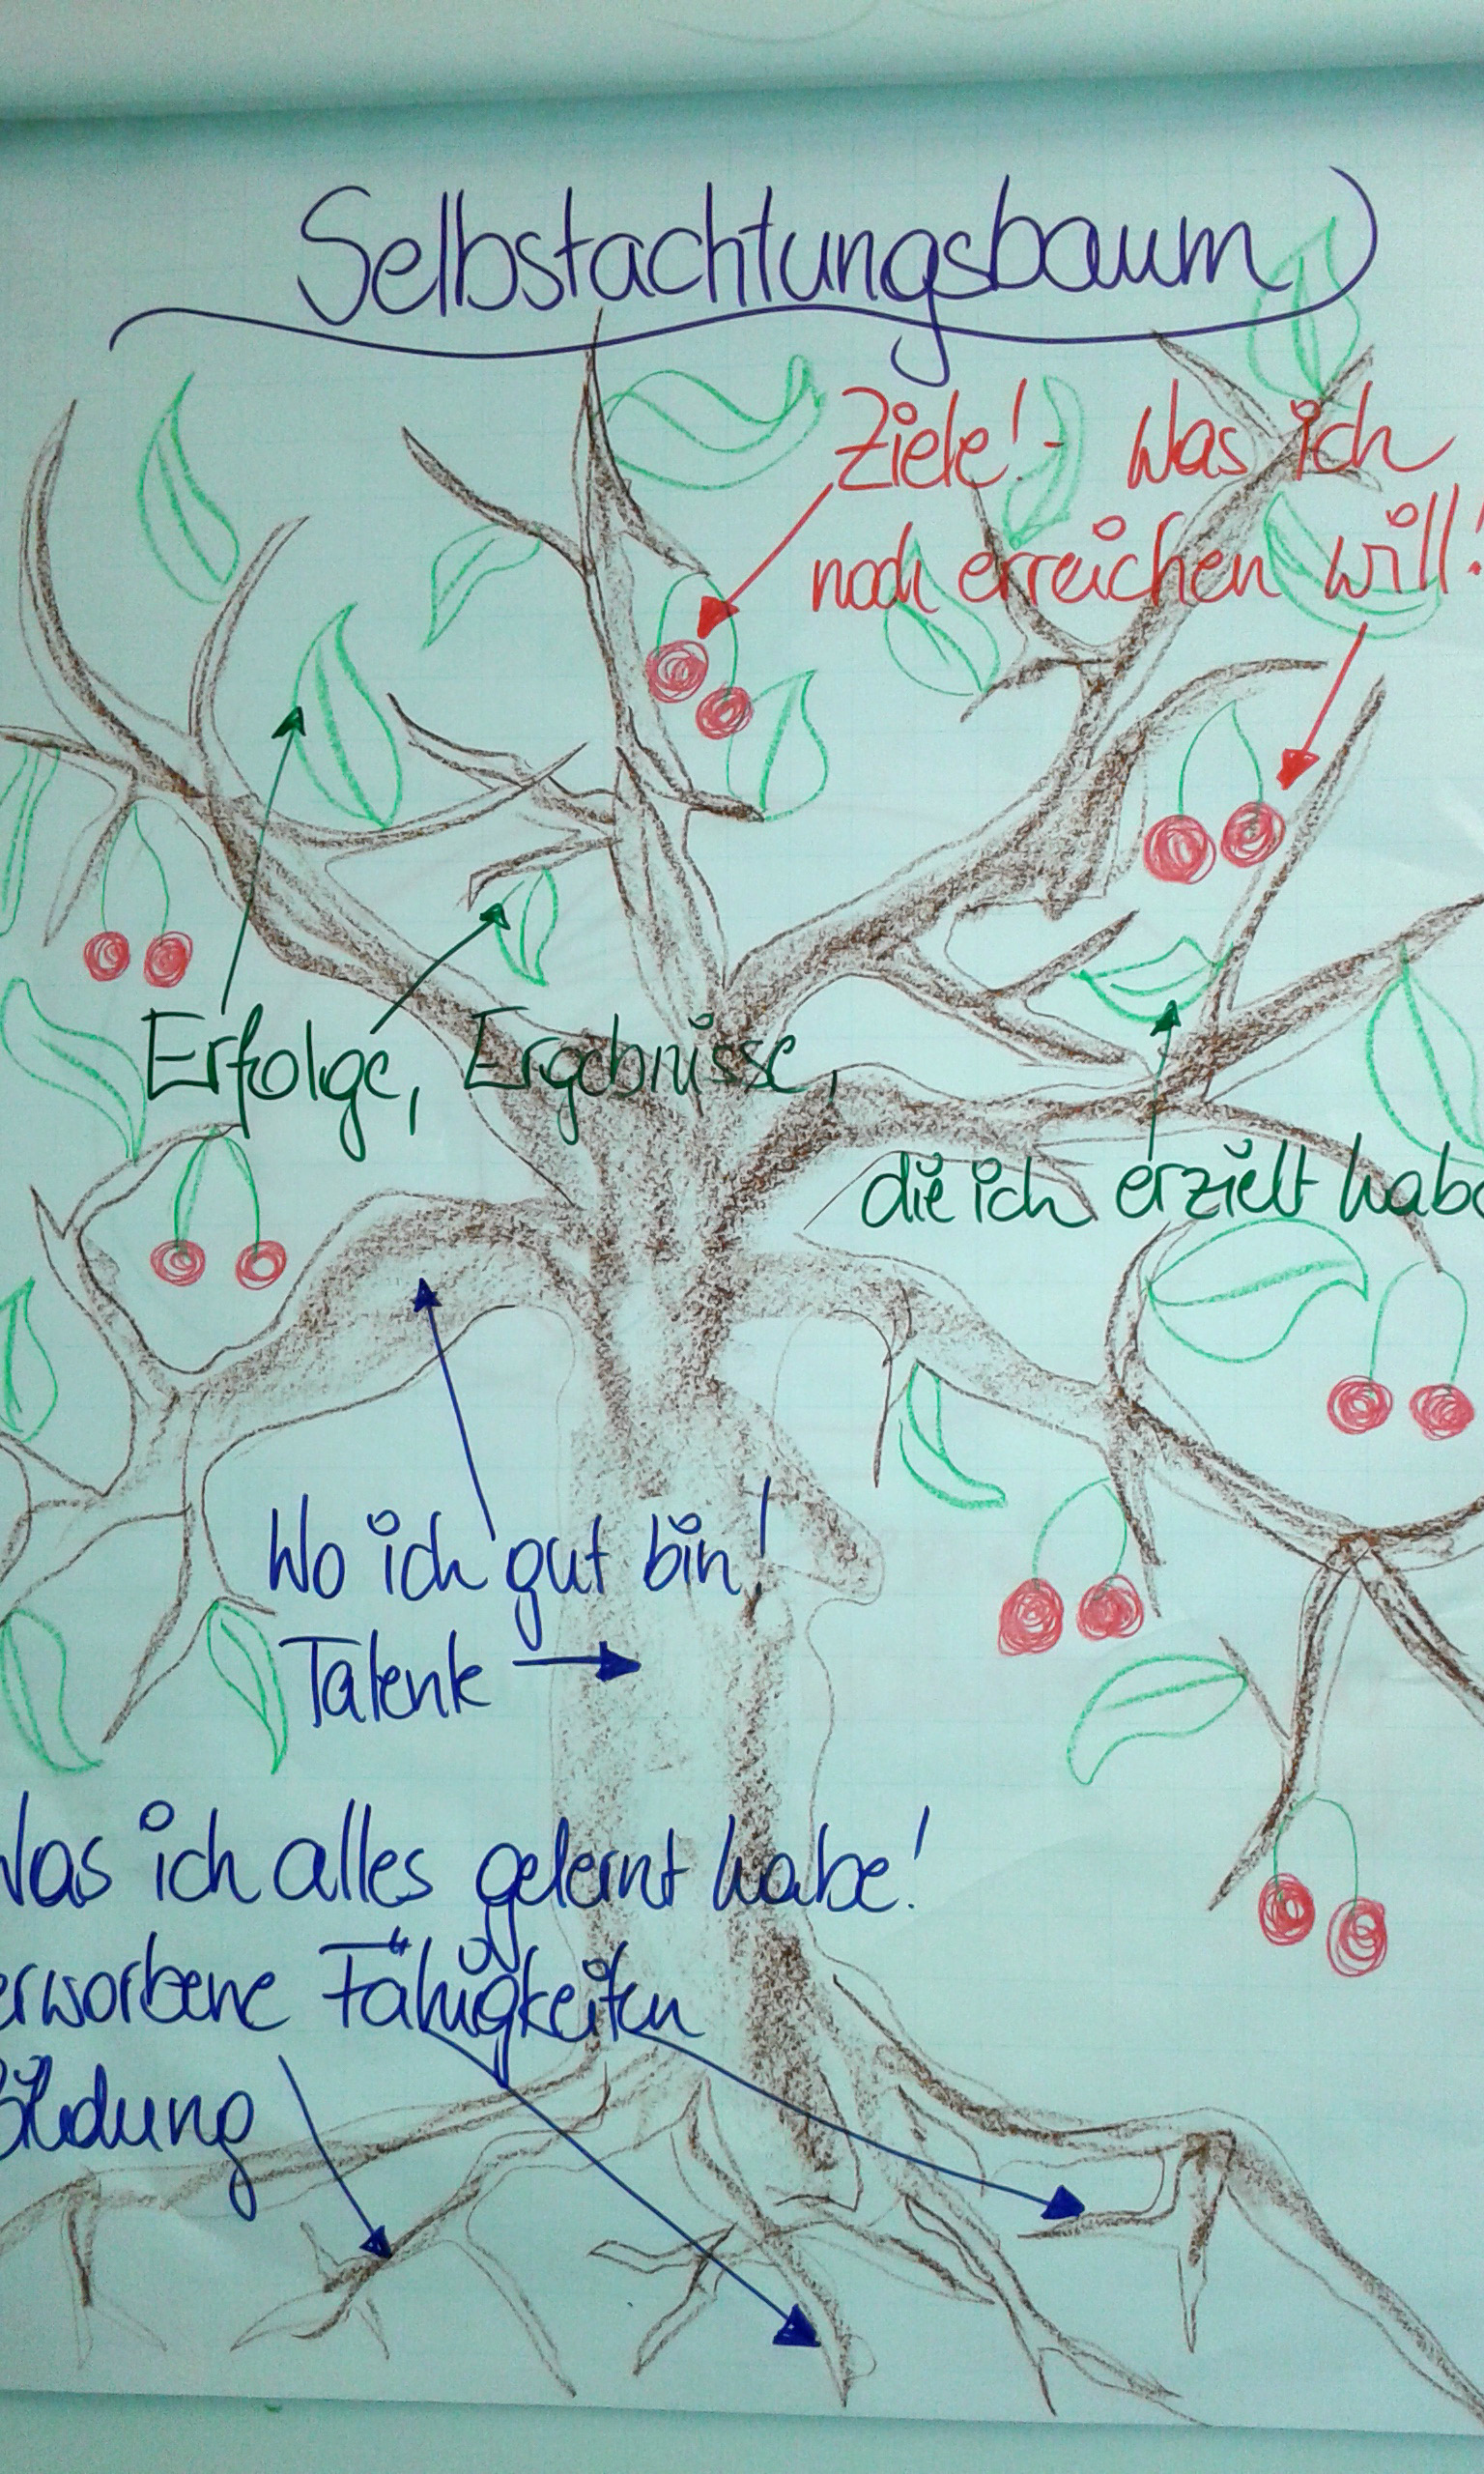 Selbstachtungsbaum
Ziele! - Was ich
noch erreichen will!
Erfolge, Ergebnisse,
die ich erzielt habe
Wo ich gut bin!
Talente
Was ich alles gelernt habe!
erworbene Fähigkeiten
Bildung